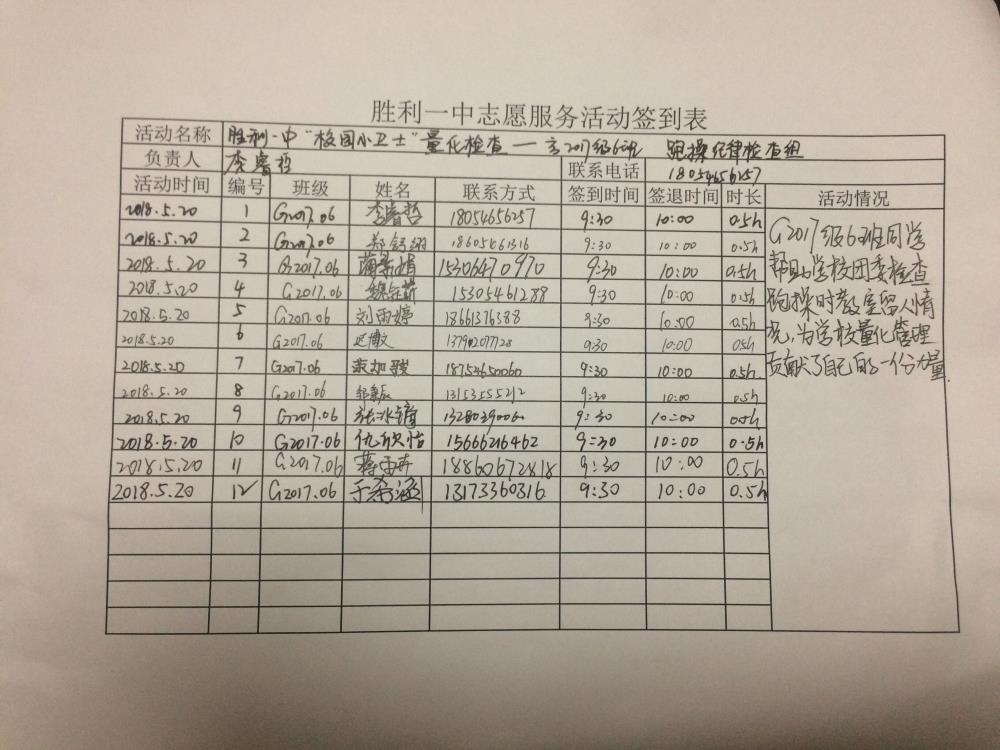 胜利一中志愿服务活动签到表
活动名称 胜利一中“校园小卫士”量化检查——高2017级6班 跑操纪律检查组
负责人 李睿哲 联系电话 18054656257
活动时间 编号 班级 姓名 联系方式 签到时间 签退时间 时长 活动情况
2018.5.20 1 G2017.06 李睿哲 18054656257 9:30 10:00 0.5h
2018.5.20 2 G2017.06 18605461316 9:30 10:00 0.5h
2018.5.20 3 G2017.06 15306470970 9:30 10:00 0.5h
2018.5.20 4 G2017.06 15305461289 9:30 10:00 0.5h
2018.5.20 5 G2017.06 刘雨婷 18661376388 9:30 10:00 0.5h
2018.5.20 6 G2017.06 13792077728 9:30 10:00 0.5h
2018.5.20 7 G2017.06 18754650060 9:30 10:00 0.5h
2018.5.20 8 G2017.06 13153555212 9:30 10:00 0.5h
2018.5.20 9 G2017.06 9:30 10:00 0.5h
2018.5.20 10 G2017.06 仇欣怡 15666216462 9:30 10:00 0.5h
2018.5.20 11 G2017.06 18860672818 9:30 10:00 0.5h
2018.5.20 12 G2017.06 于希涵 13173360316 9:30 10:00 0.5h
G2017级6班同学
帮助学校团委检查
跑操时教室留人情
况,为学校量化管理
贡献了自己的一份力量